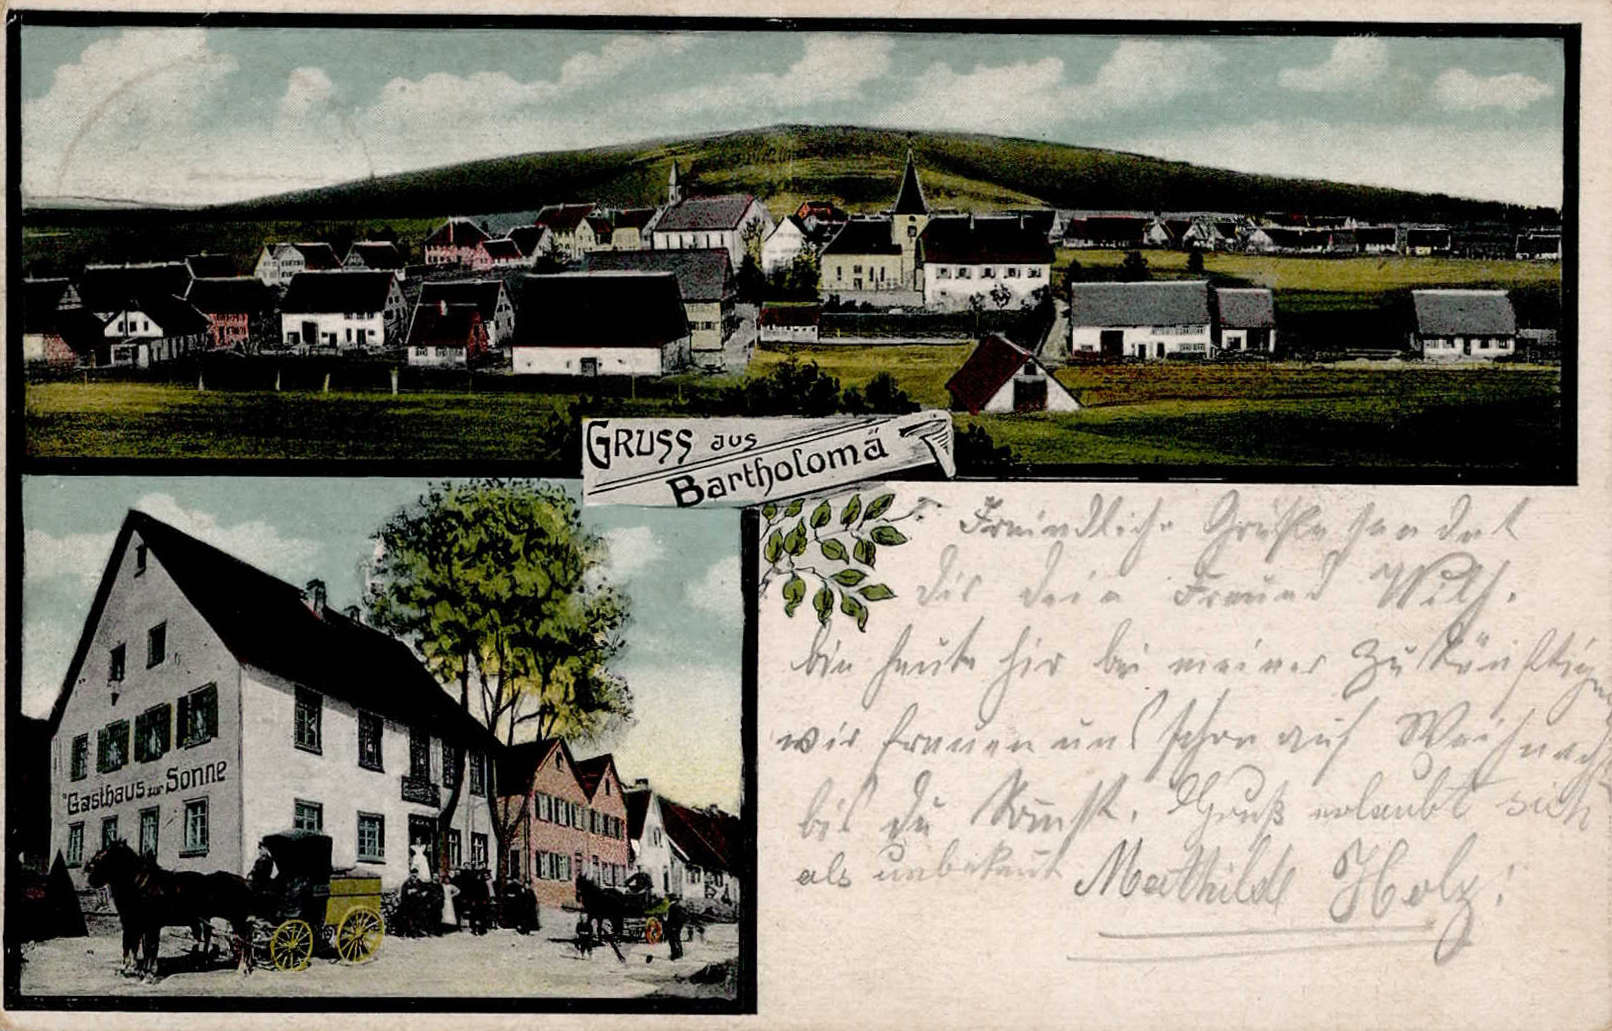 GRUSS aus
Bartholomä
Gasthaus zur Sonne
Freundliche Grüße sendet
dir dein Freund Wilh.
bin heute hir bei meiner Zukünftigen
wir freuen uns schon auf Weihnacht
bis du kömst. Gruß erlaubt sich
als unbekant Mathilde Holz!